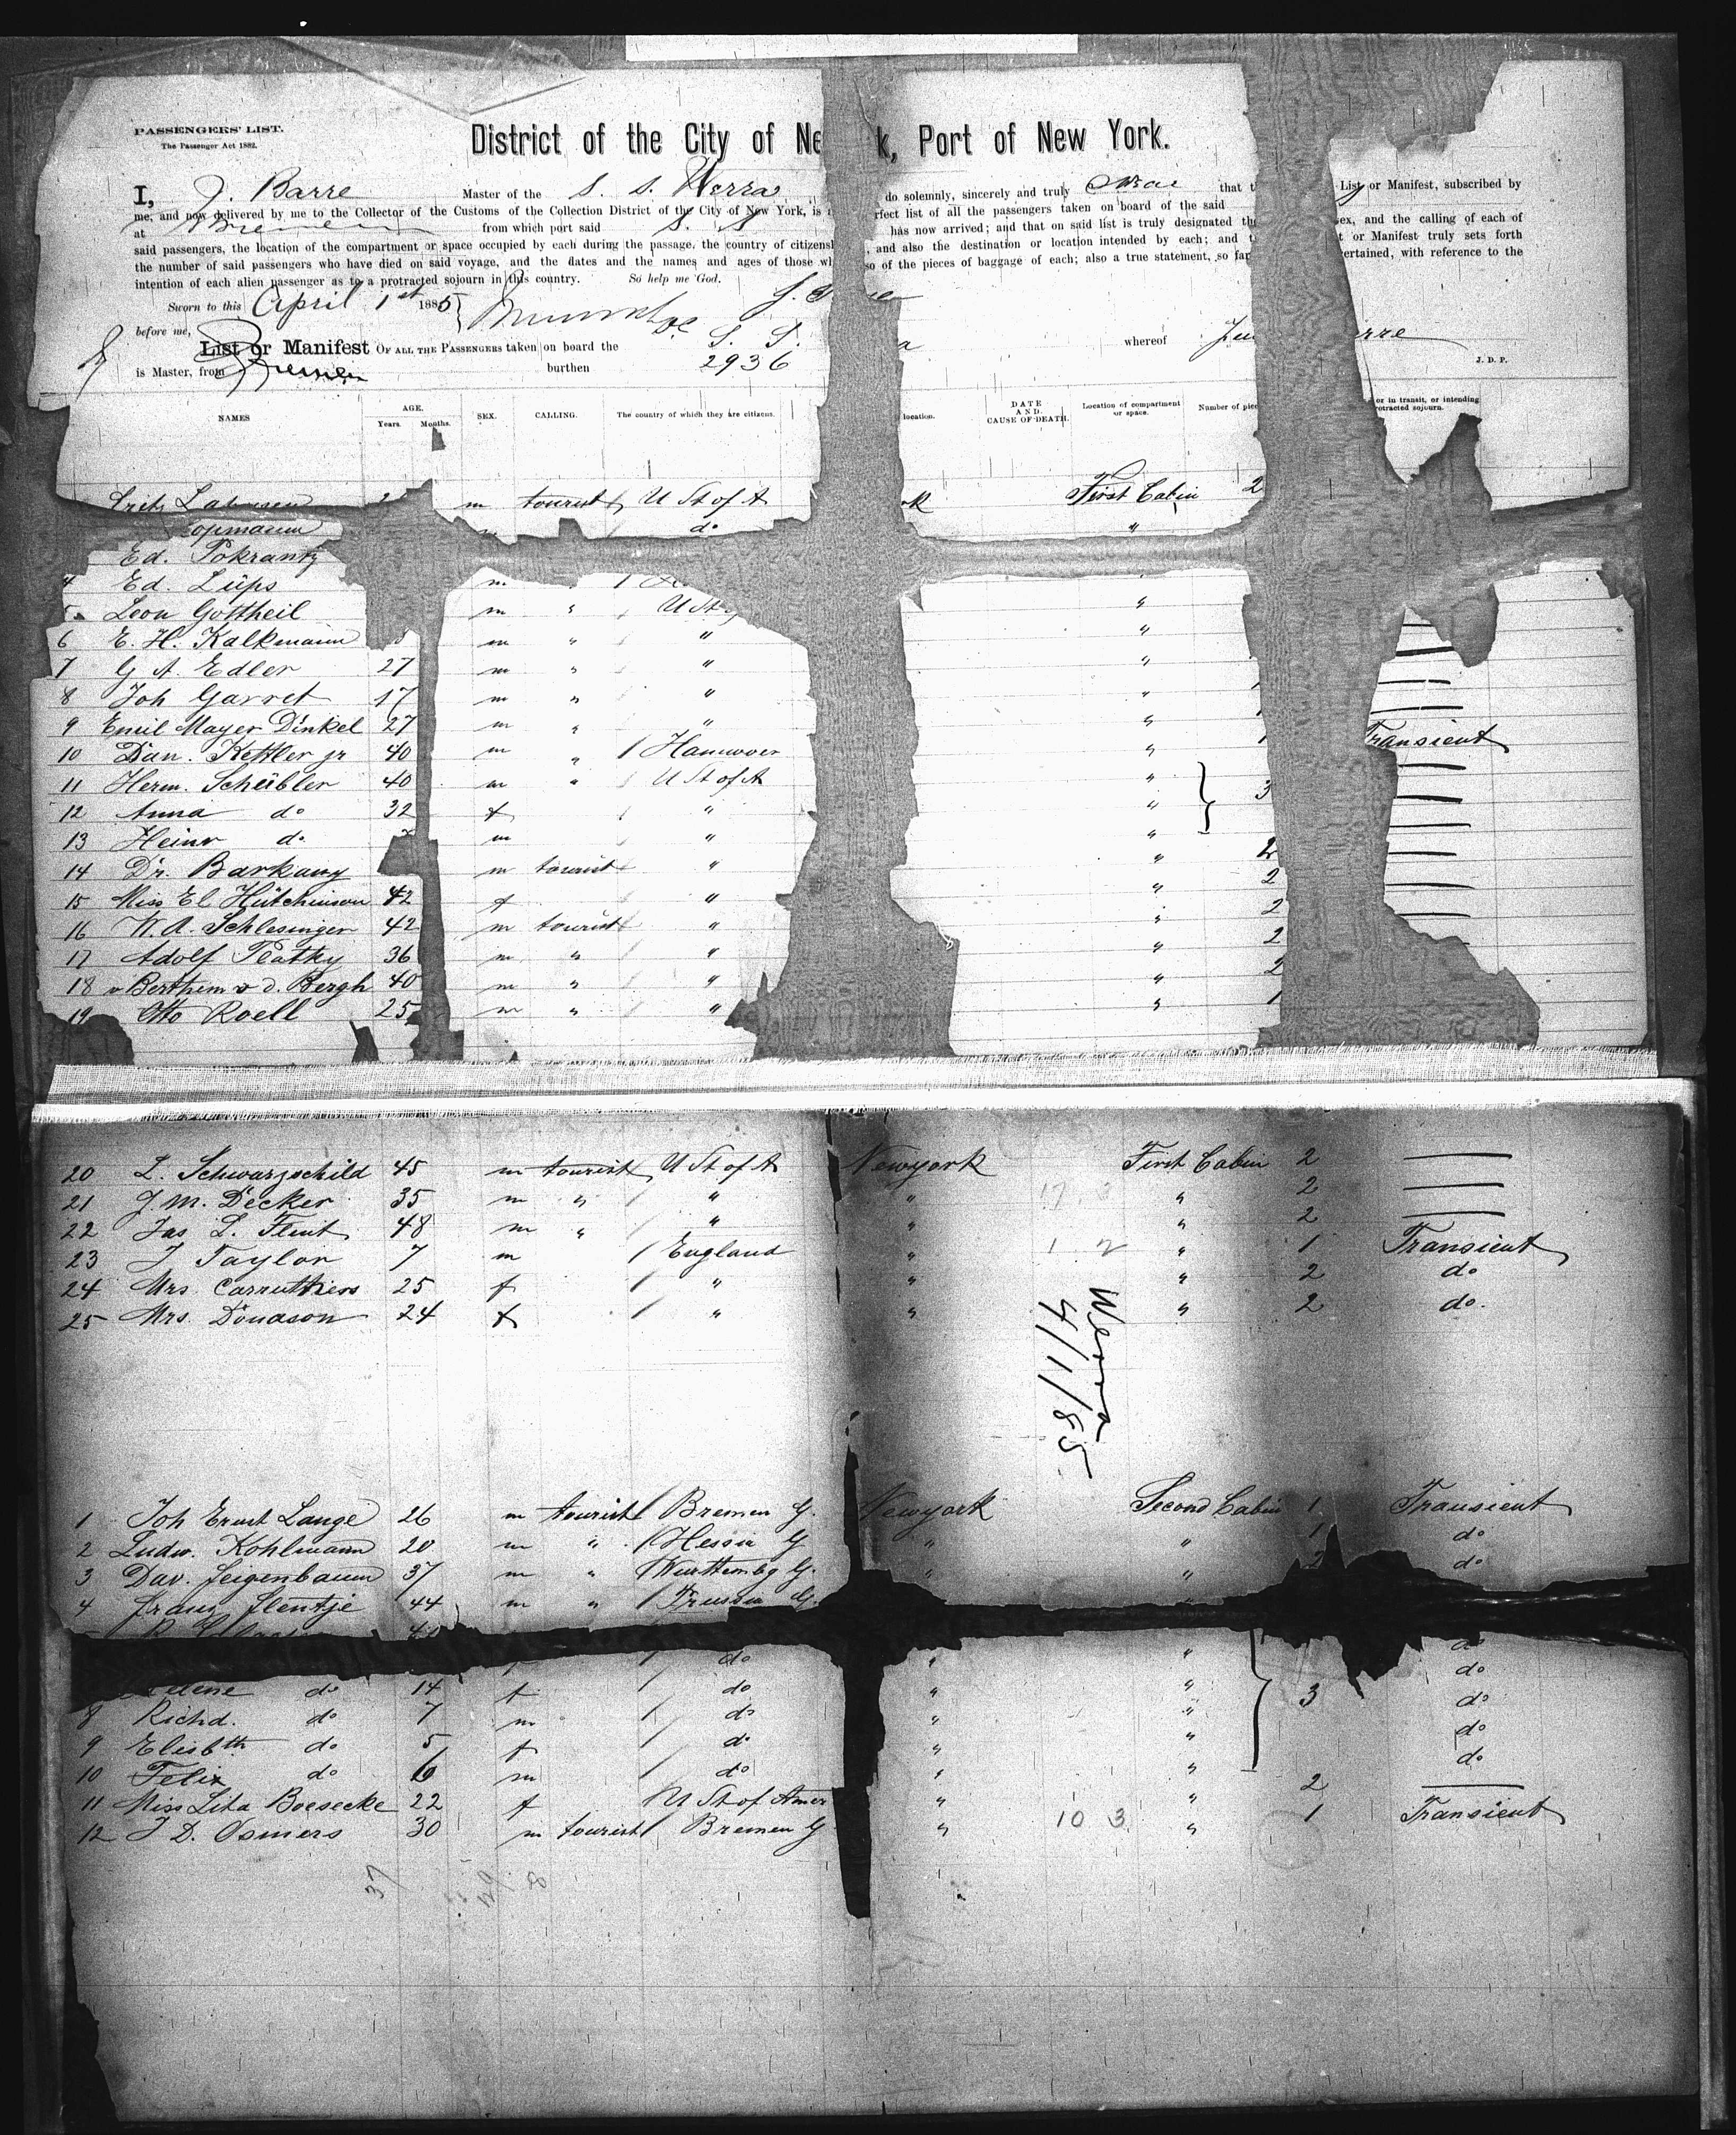 PASSENGERS' LIST.
The Passenger Act 1882.
District of the City of Ne k, Port of New York.
I, J. Barre Master of the S. S. Werra do solemnly, sincerely and truly swear that t List or Manifest, subscribed by
me, and now delivered by me to the Collector of the Customs of the Collection District of the City of New York, is rfect list of all the passengers taken on board of the said
at Bremen from which port said S. S has now arrived; and that on said list is truly designated the sex, and the calling of each of
said passengers, the location of the compartment or space occupied by each during the passage, the country of citizensh , and also the destination or location intended by each; and t t or Manifest truly sets forth
the number of said passengers who have died on said voyage, and the dates and the names and ages of those wh so of the pieces of baggage of each; also a true statement, so far ertained, with reference to the
intention of each alien passenger as to a protracted sojourn in this country. So help me God.
Sworn to this April 1st 1885
before me,
List or Manifest OF ALL THE PASSENGERS taken on board the S. S. a whereof rre
is Master, from Bremen burthen 2936 J. D. P.
NAMES AGE. Years. Months. SEX. CALLING. The country of which they are citizens. location. DATE AND CAUSE OF DEATH. Location of compartment or space. Number of piec or in transit, or intending rotracted sojourn.
m tourist U St of A rk First Cabin 2
opmann do "
Ed. Pokrantz
4 Ed. Lüps m
5 Leon Gottheil m " U St "
6 E. H. Kalkmann m " " "
7 G A. Edler 27 m " " "
8 Joh Garret 17 m " " "
9 Emil Mayer Dinkel 27 m " " "
10 Dan. Kettler jr 40 m " Hannover " 1 Transient
11 Herm. Schübler 40 m " U St of A " 3
12 Anna do 32 f " "
13 Heinr do m " "
14 Dr. Barkany m tourist " " 2
15 Miss El Hutchinson 42 f " " 2
16 W. A. Schlesinger 42 m tourist " " 2
17 Adolf Peathy 36 m " " " 2
18 v Berthem v d. Bergh 40 m " " " 2
19 Otto Roell 25 m " " " 1
20 L. Schwarzschild 45 m tourist U St of A Newyork First Cabin 2
21 J. M. Decker 35 m " " " " 2
22 Jas L. Flint 48 m " " " " 2
23 J Taylor 7 m England " " 1 Transient
24 Mrs Carruthers 25 f " " " 2 do
25 Mrs Donason 24 f " " " 2 do.
Werra
4/1/85
1 Joh Ernst Lange 26 m tourist Bremen G. Newyork Second Cabin 1 Transient
2 Ludw. Kohlmann 20 m " Hessia G " " 1 do
3 Dav. Feigenbaum 37 m " Württembg G. " " 2 do
4 Franz Flentje 44 m " Prussia G.
do " " do
elene do 14 f do " " do
8 Richd. do 7 m do " " 3 do
9 Elisbth do 5 f do " " do
10 Felix do 6 m do " " do
11 Miss Lita Boesecke 22 f U St of Amer " " 2
12 J D. Osmers 30 m tourist Bremen G " 10 3 " 1 Transient